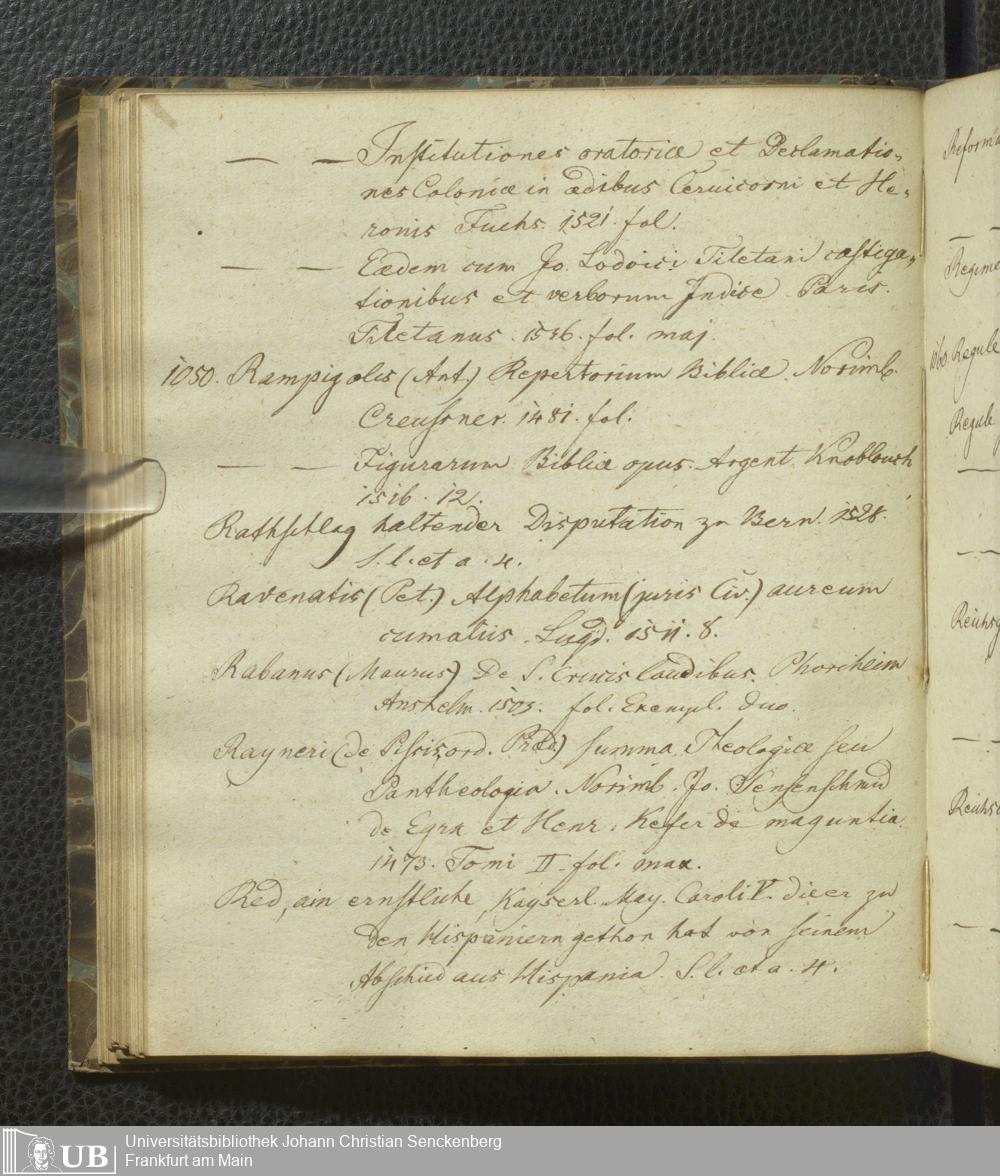 — — Institutiones oratoriæ et Declamatio„
nes Coloniæ in ædibus Ceruicorni et He„
ronis Fuchs. 1521. fol.
— — Eædem cum Jo. Lodoici Tiletani castiga„
tionibus et verborum Indice. Paris.
Tiletanus. 1546. fol. maj.
1050. Rampigolis (Ant.) Repertorium Bibliæ. Norimb.
Creussner. 1481. fol.
— — Figurarum Bibliæ opus. Argent. Knoblouch
1516. 12.
Rathschlag haltender Disputation zu Bern. 1528.
S. l. et a. 4.
Ravenatis (Pet.) Alphabetum (juris Civ.) aureum
cumatiis. Lugd. 1511. 8.
Rabanus (Maurus) De S. crucis laudibus. Phorcheim
Anshelm. 1503. fol. Exempl. duo.
Rayneri (de Pisis, ord. Præd.) summa Theologiæ seu
Pantheologia. Norimb. Jo. Sensenschmid
de Egra et Henr. Kefer de maguntia.
1473. Tomi II. fol. max.
Red, ain ernstliche, Kayserl. May. Caroli V. die er zu
den Hispaniern gethon hat von seinem
Abschied aus Hispania. S. l. et a. 4.
Reforma
—
Regime
1060. Regule
Regule
—
—
—
—
UB
Universitätsbibliothek Johann Christian Senckenberg
Frankfurt am Main